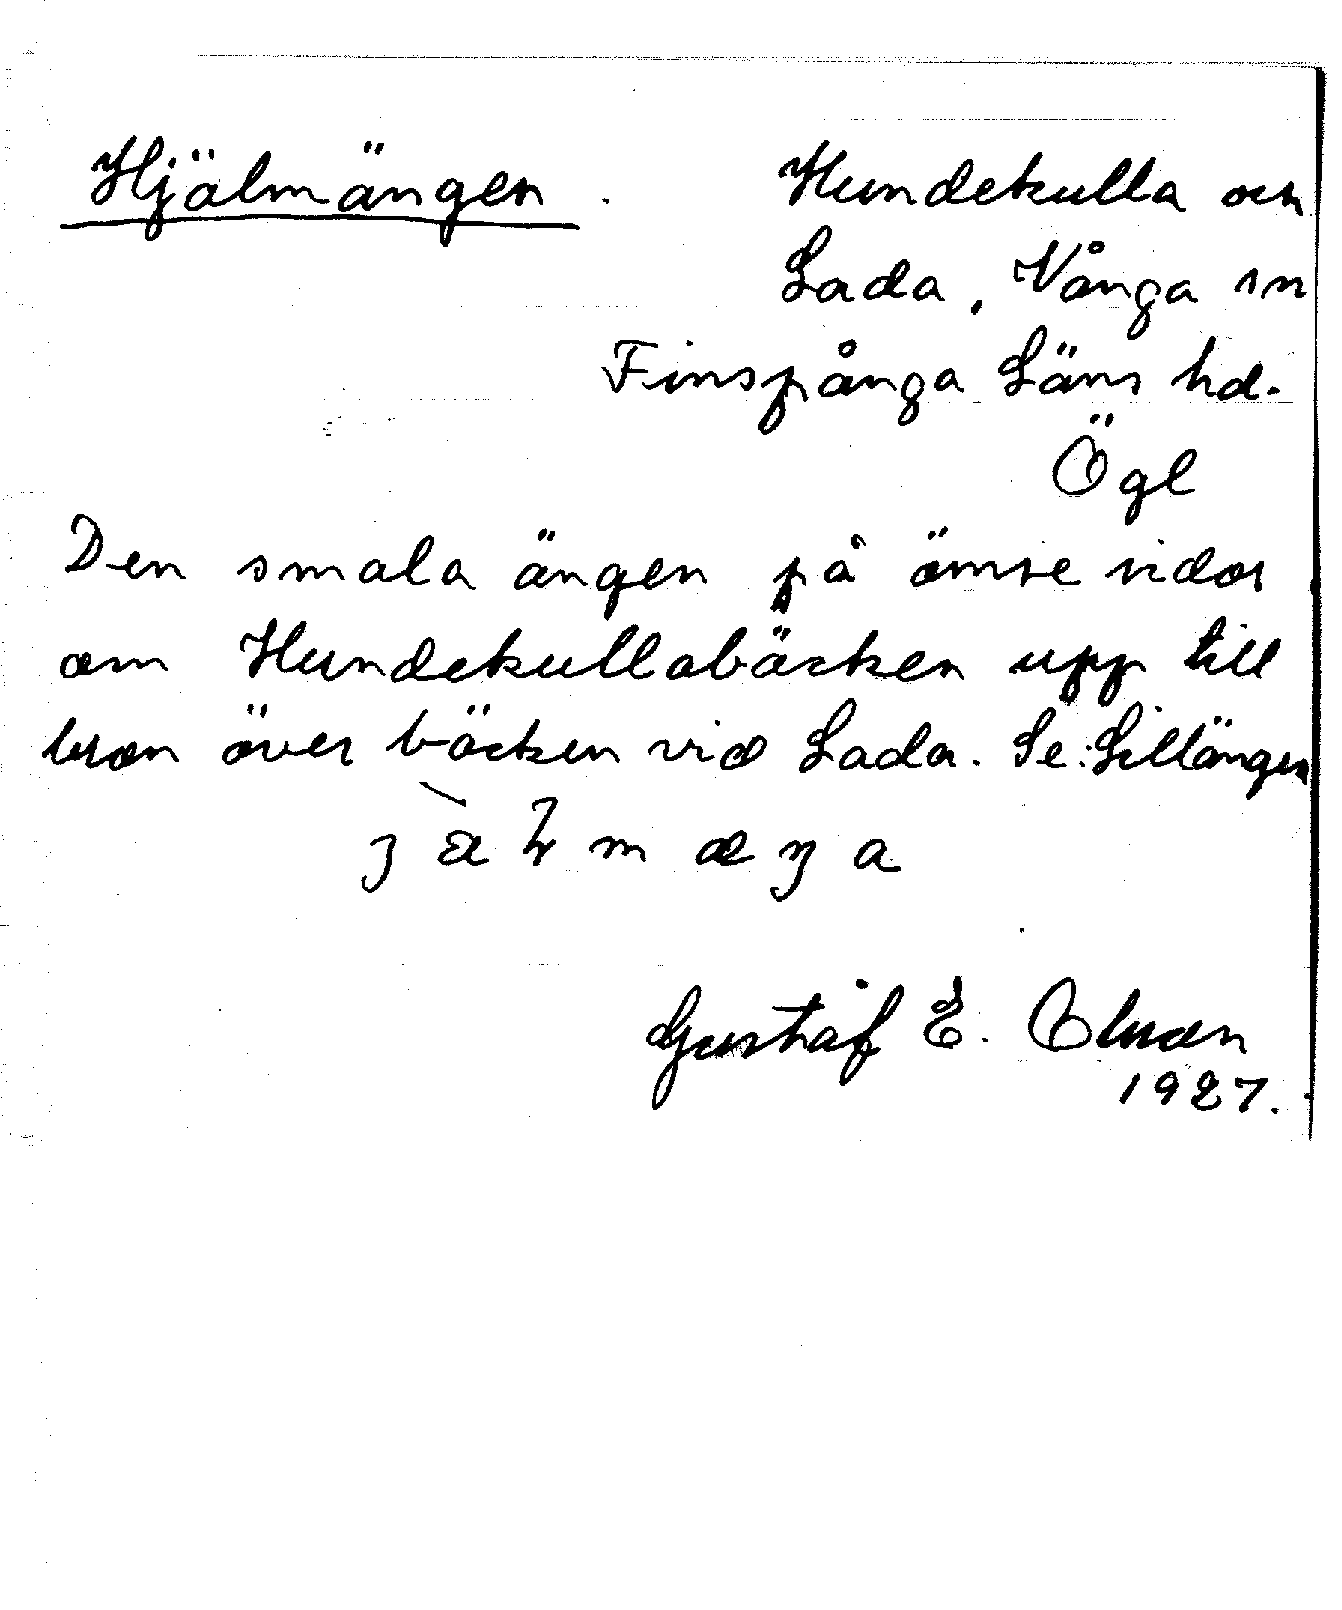 Hjälmängen. Hundekulla och
Lada, Vånga sn
Finspånga Läns hd.
Ögl
Den smala ängen på ömse sidor
om Hundekullabäcken upp till
bron över bäcken vid Lada. Se: Lillängen
Gustaf E. Olson
1927.